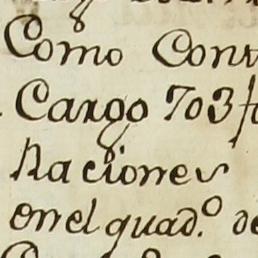 Como Cont
Cargo 703
Raciones
en el quad.º de